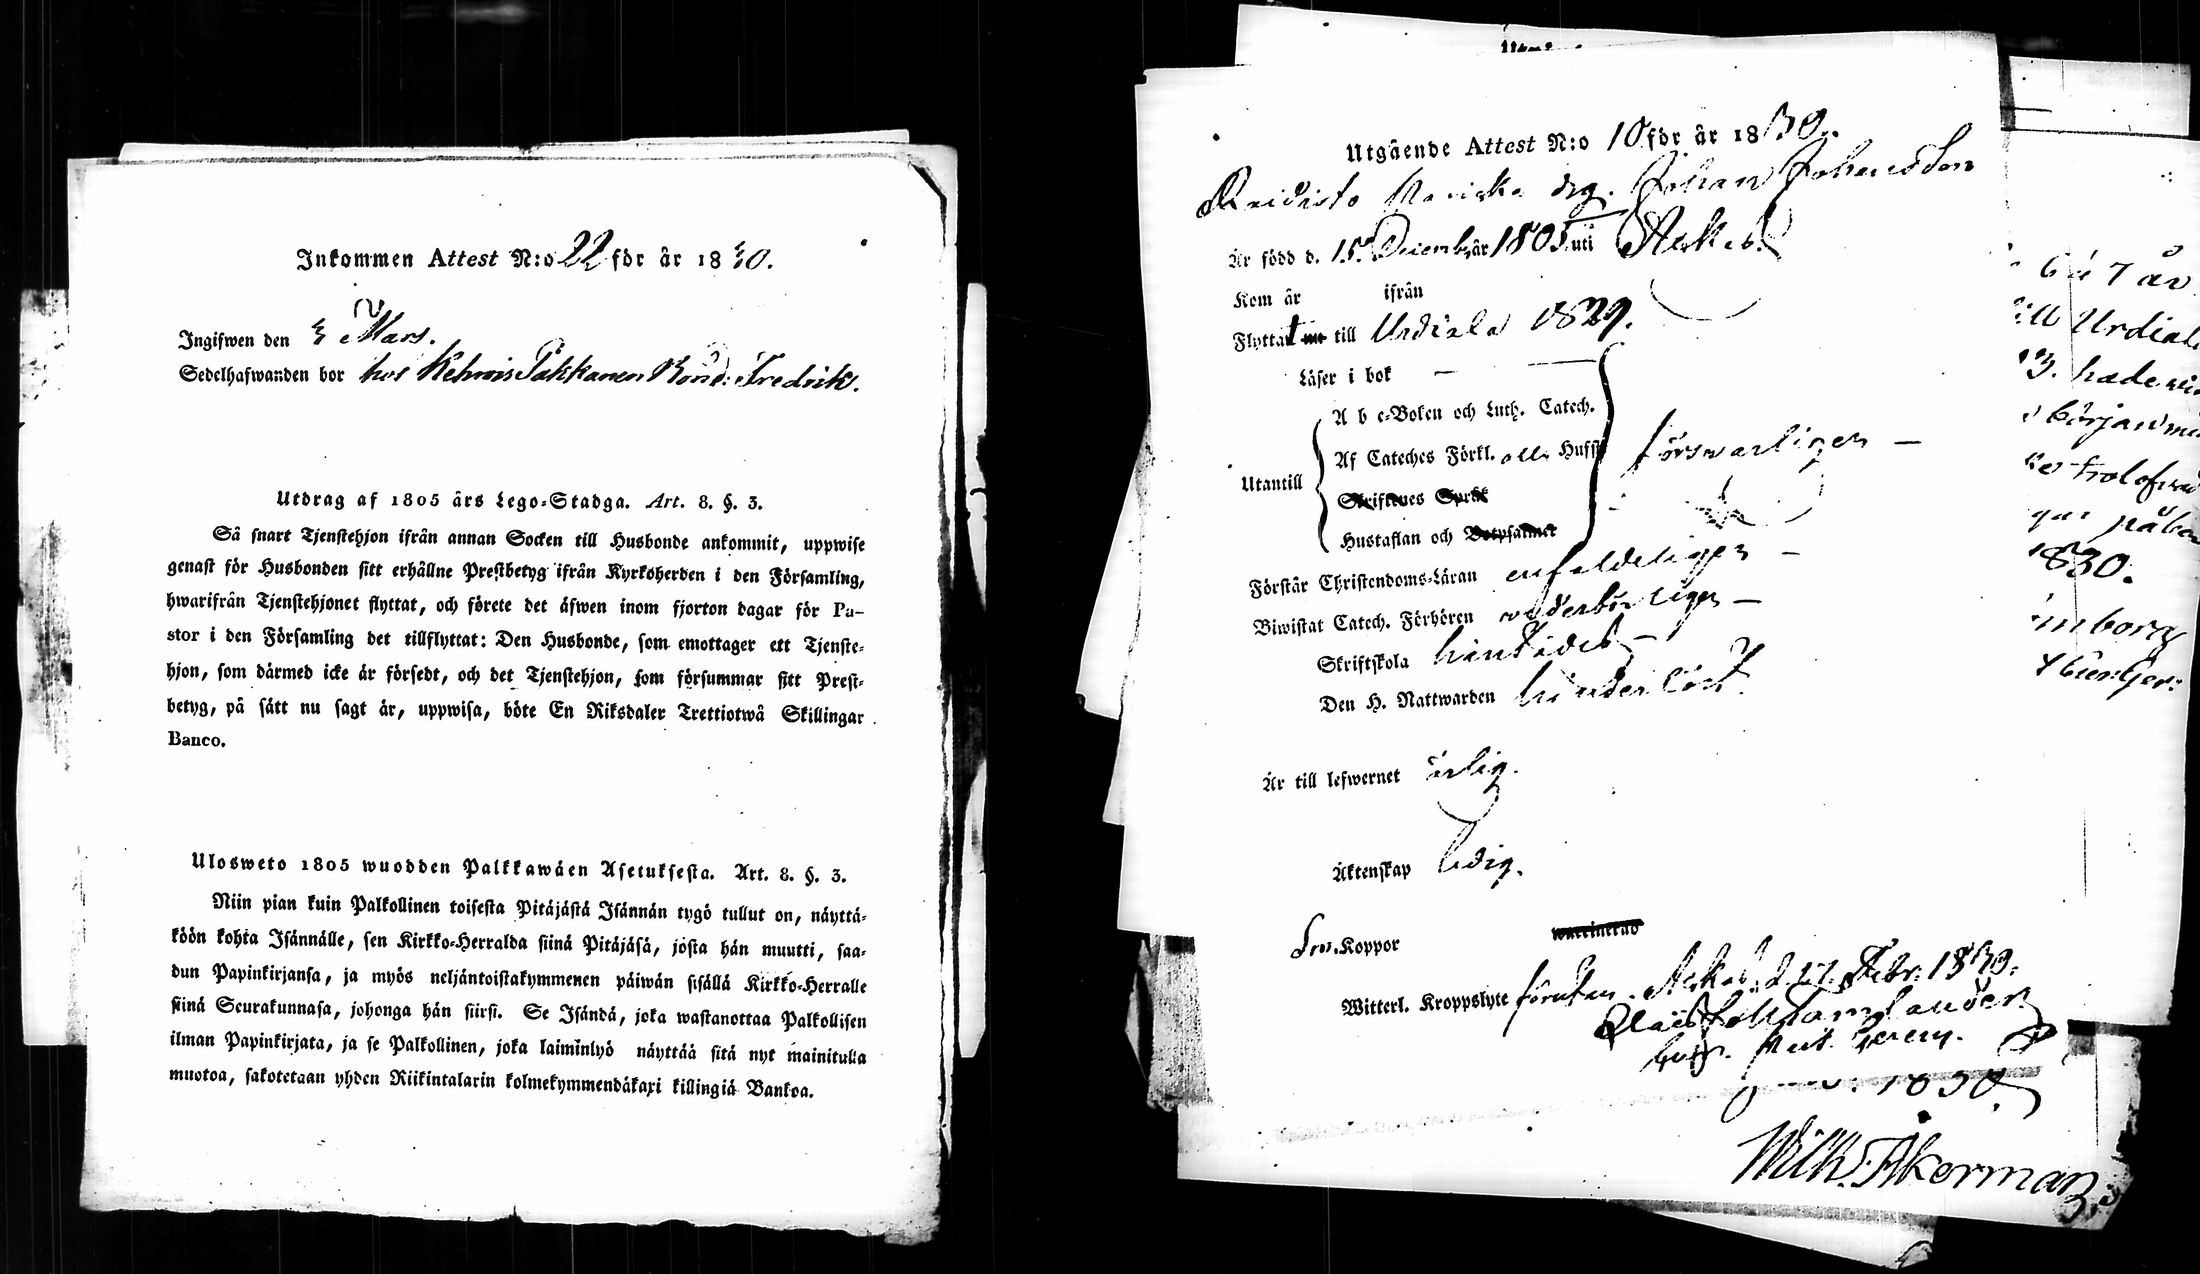 Inkommen Attest N:o 22 för år 1830.
Ingifwen den 3 Mars.
Sedelhafwanden bor hos Kehrois Pakkanen Bond: Fredrik.
Utdrag af 1805 års Lego-Stadga. Art. 8. §. 3.
Så snart Tjenstehjon ifrån annan Socken till Husbonde ankommit, uppwise
genast för Husbonden sitt erhållne Prestbetyg ifrån Kyrkoherden i den Församling,
hwarifrån Tjenstehjonet flyttat, och förete det äfwen inom fjorton dagar för Pa-
stor i den Församling det tillflyttat: Den Husbonde, som emottager ett Tjenste-
hjon, som därmed icke är försedt, och det Tjenstehjon, som försummar sitt Prest-
betyg, på sätt nu sagt är, uppwisa, böte En Riksdaler Trettiotwå Skillingar
Banco.
Ulosweto 1805 wuodden Palkkawäen Asetuksesta. Art. 8. §. 3.
Niin pian kuin Palkollinen toisesta Pitäjästä Isännän tygö tullut on, näyttä-
köön kohta Isännälle, sen Kirkko-Herralda siinä Pitäjäsä, josta hän muutti, saa-
dun Papinkirjansa, ja myös neljäntoistakymmenen päiwän sisällä Kirkko-Herralle
siinä Seurakunnasa, johonga hän siirsi. Se Isändä, joka wastanottaa Palkollisen
ilman Papinkirjata, ja se Palkollinen, joka laiminlyö näyttää sitä nyt mainitulla
muotoa, sakotetaan yhden Riikintalarin kolmekymmendäkaxi killingiä Bankoa.
Utgående Attest N:o 10 för år 1830.
drg. Johan Johansson
Är född d. 15 Decemb. år 1805 uti Askas
Kom år ifrån
Flyttat till Urdiala 1829.
Läser i bok —
A b c-Boken och Luth. Catech.
Af Cateches Förkl. alla Hufst
Utantill försvarligen —
Skriftenes Språk
Hustaflan och Botpsalmer
Förstår Christendoms-Läran enfaldeligen —
Biwistat Catech. Förhören wederbörligen —
Skriftskola
Den H. Nattwarden hinderlöst.
Är till lefwernet ärlig.
Äktenskap ledig.
Koppor vaccinerad
Witterl. Kroppslyte förutan. d. Febr: 1830.
1830.
Wilh. Åkerman
7 år
till Urdiala
hade
början
på
1830.